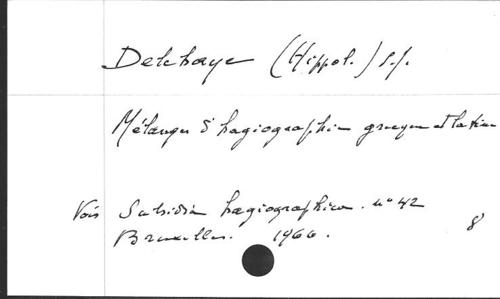 Delehaye (Hippol.) S.J.
Mélanges d'hagiographie grecque et latine
Voir Subsidia hagiographica. nº 42
Bruxelles. 1966.
8